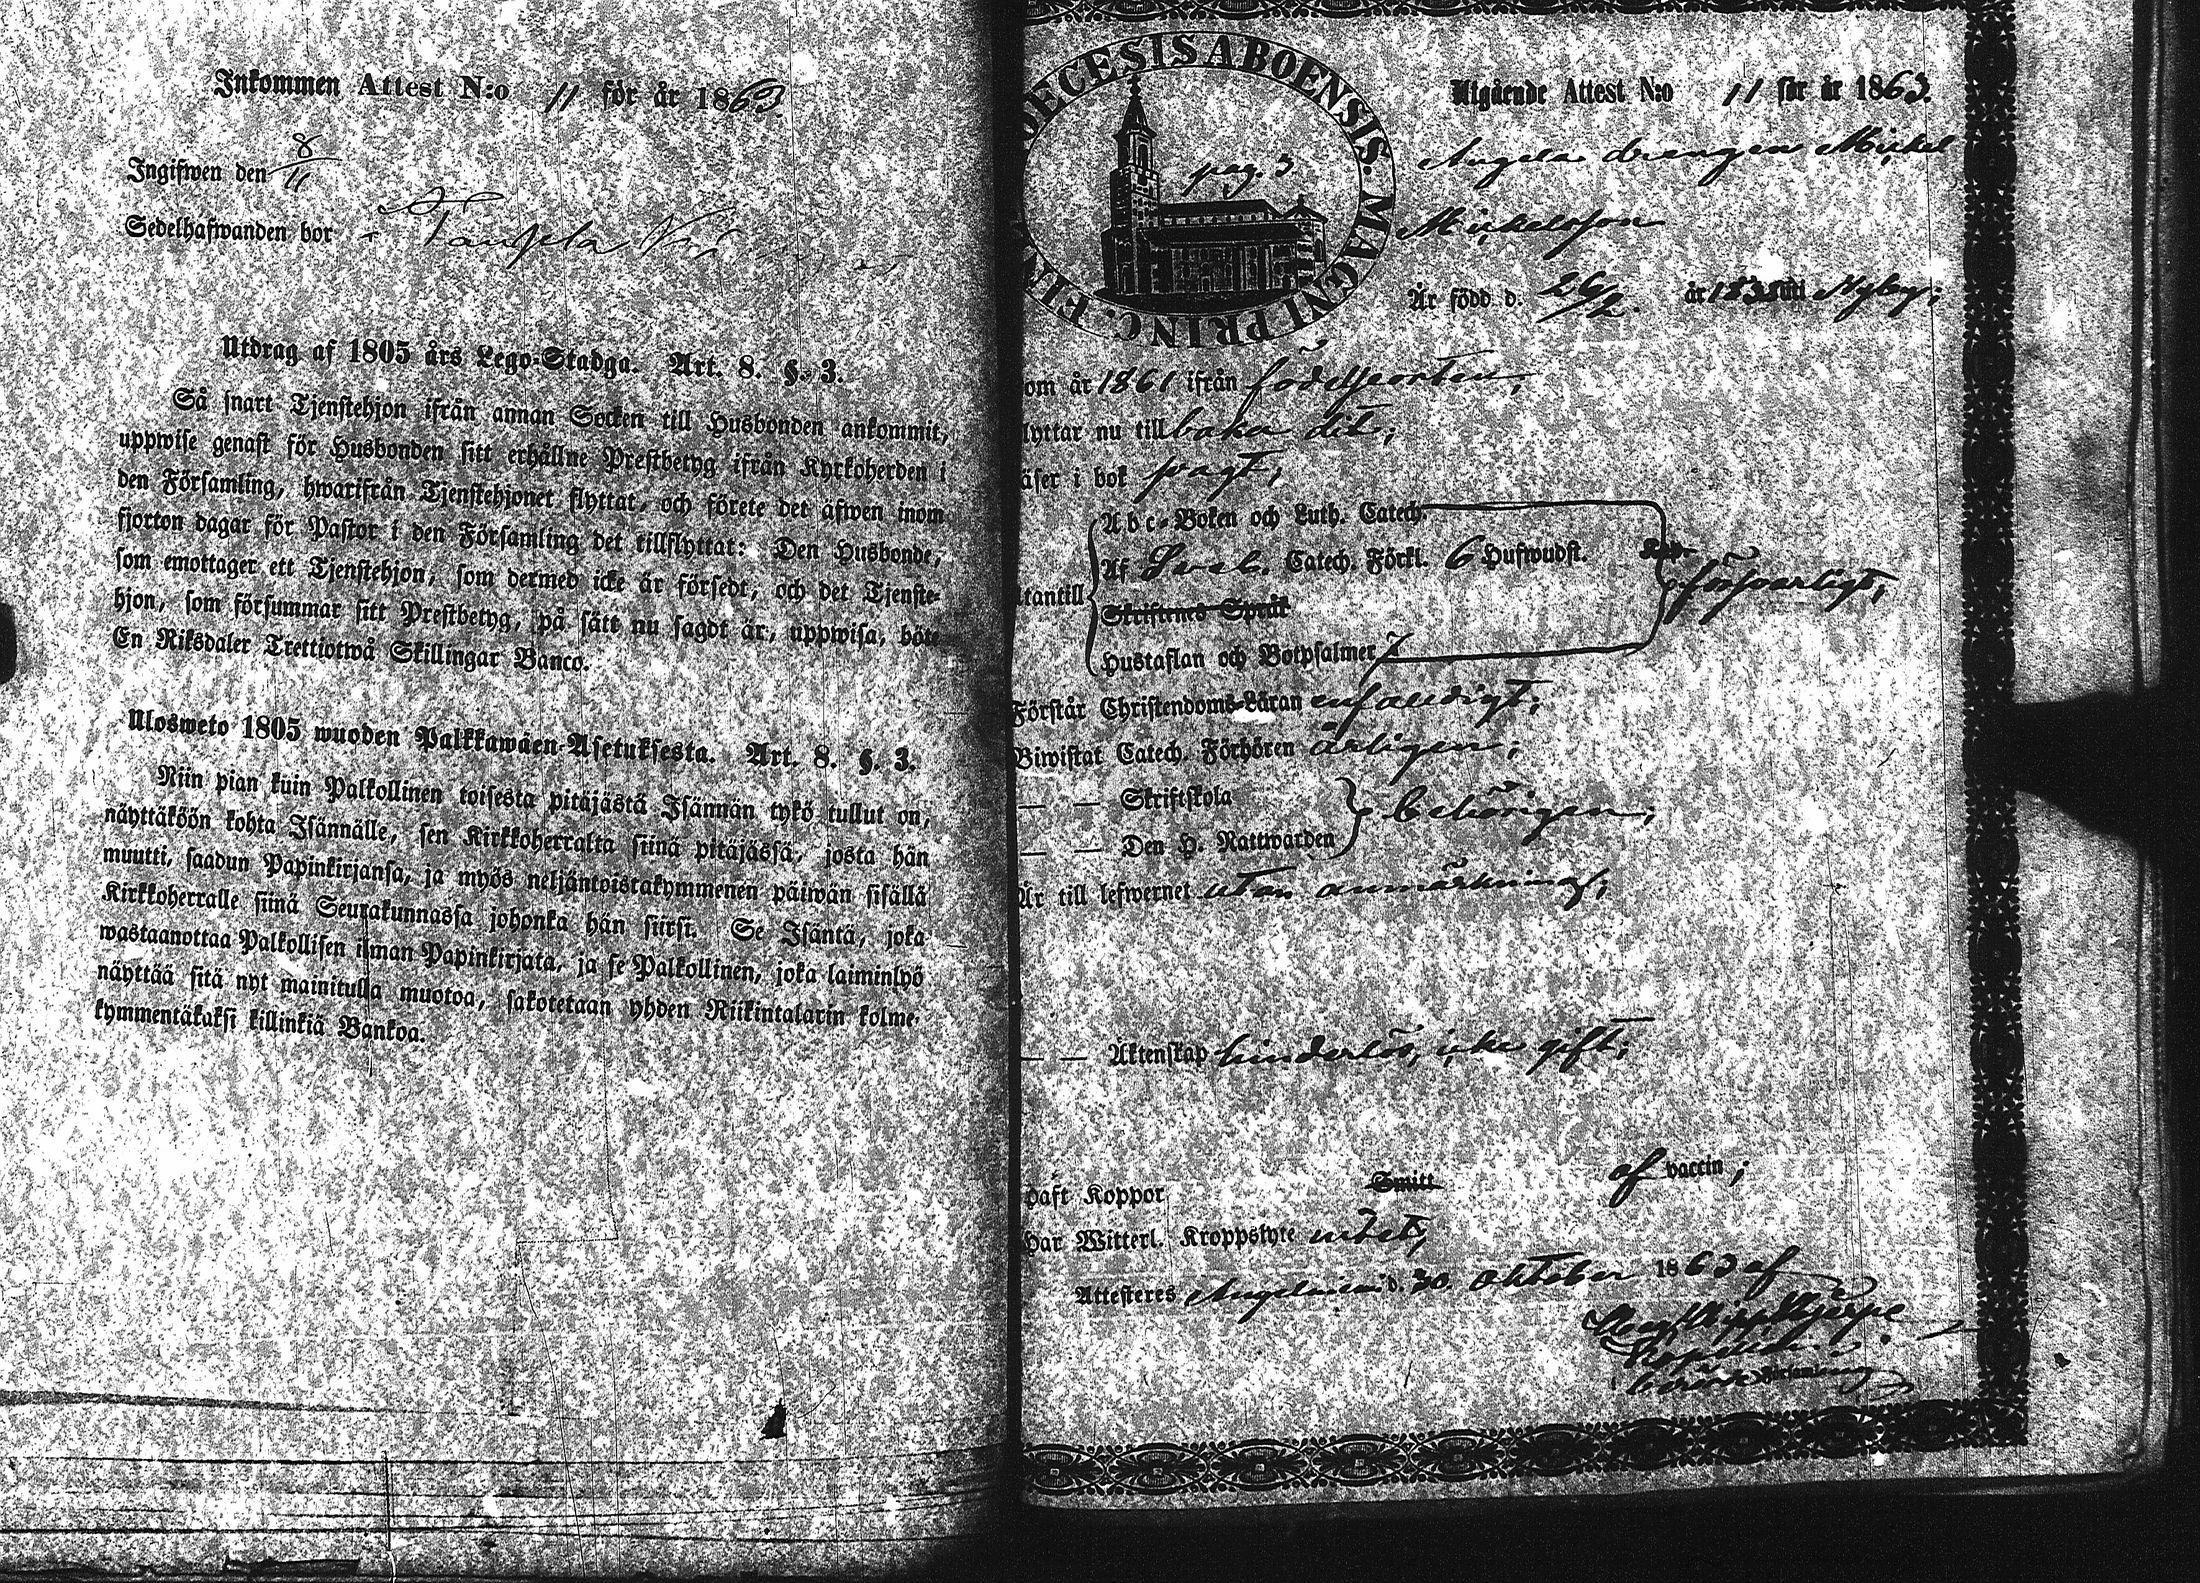 Inkommen Attest N:o 11 för år 1863.
Ingifwen den 8/11
Sedelhafwanden bor
Utdrag af 1805 års Lego-Stadga. Art. 8. §. 3.
Så snart Tjenstehjon ifrån annan Socken till Husbonden ankommit,
uppwise genast för Husbonden sitt erhållne Prestbetyg ifrån Kyrkoherden i
den Församling, hwarifrån Tjenstehjonet flyttat, och förete det äfwen inom
fjorton dagar för Pastor i den Församling det tillflyttat: Den Husbonde,
som emottager ett Tjenstehjon, som dermed icke är försedt, och det Tjenste-
hjon, som försummar sitt Prestbetyg, på sätt nu sagdt är, uppwisa, böte
En Riksdaler Trettiotwå Skillingar Banco.
Ulosweto 1805 wuoden Palkkawäen-Asetuksesta. Art. 8. §. 3.
Niin pian kuin Palkollinen toisesta pitäjästä Isännän tykö tullut on,
näyttäköön kohta Isännälle, sen Kirkkoherralta siinä pitäjässä, josta hän
muutti, saadun Papinkirjansa, ja myös neljäntoistakymmenen päiwän sisällä
Kirkkoherralle siinä Seurakunnassa johonka hän siirsi. Se Isäntä, joka
wastaanottaa Palkollisen ilman Papinkirjata, ja se Palkollinen, joka laiminlyö
näyttää sitä nyt mainitulla muotoa, sakotetaan yhden Riikintalarin kolme-
kymmentäkaksi killinkiä Bankoa.
OECESIS ABOENSIS. MAGNI PRINC. FIN
pag. 3
Utgående Attest N:o 11 för år 1863.
Angela drengen Mickel
Mickelsson
Är född d. 26/2. år i Nyby;
om år 1861 ifrån födelseorten;
lyttar nu till baka dit;
äser i bok svagt;
Abc-Boken och Luth. Catech.
Af Sveb. Catech. Förkl. 6 Hufwudst.
tantill försvarligt;
Skriftenes Språk
Hustaflan och Botpsalmer 7
Förstår Christendoms-Läran enfaldigt;
Biwistat Catech. Förhören årligen;
— — Skriftskola
behörigen;
— — Den H. Nattwarden
Är till lefwernet utan anmärkning;
— — Äktenskap hinderlös, icke gift;
haft Koppor Smitt af vaccin;
Har Witterl. Kroppslyte intet;
Attesteres Angelniemi d. 30. oktober 1863 af